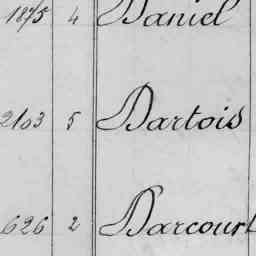 1875 4 Daniel
2103 5 Dartois
626 2 Darcourt